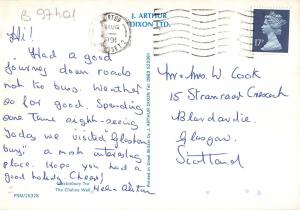 B 97401
J. ARTHUR
DIXON LTD.
17P
Hi!
Had a good
journey down roads
not too busy. Weather
so far good. Spending
some time sight-seeing
today we visited "Glaston
bury" a most interesting
place. Hope you had a
good holiday. Cheers!
Helen
Mr & Mrs W. Cook
15 Stranraer Crescent
Glasgow.
Scotland
Printed in Great Britain by J. ARTHUR DIXON
Glastonbury Tor
The Chalice Well